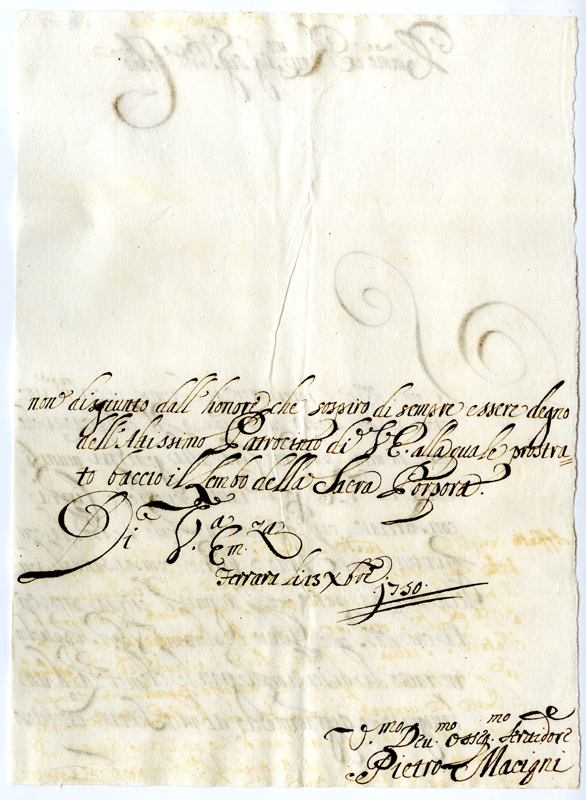 non disgiunto dall'honore, che sospiro di sempre essere degno
dell'Altissimo Patrocinio di V. E. alla quale prostra=
to baccio il Lembo della Sacra Porpora.
Di V.a Em.za
Ferrara li 13 Xbre 1750.
Dev.mo Osseq.mo Servidore
Pietro Macigni